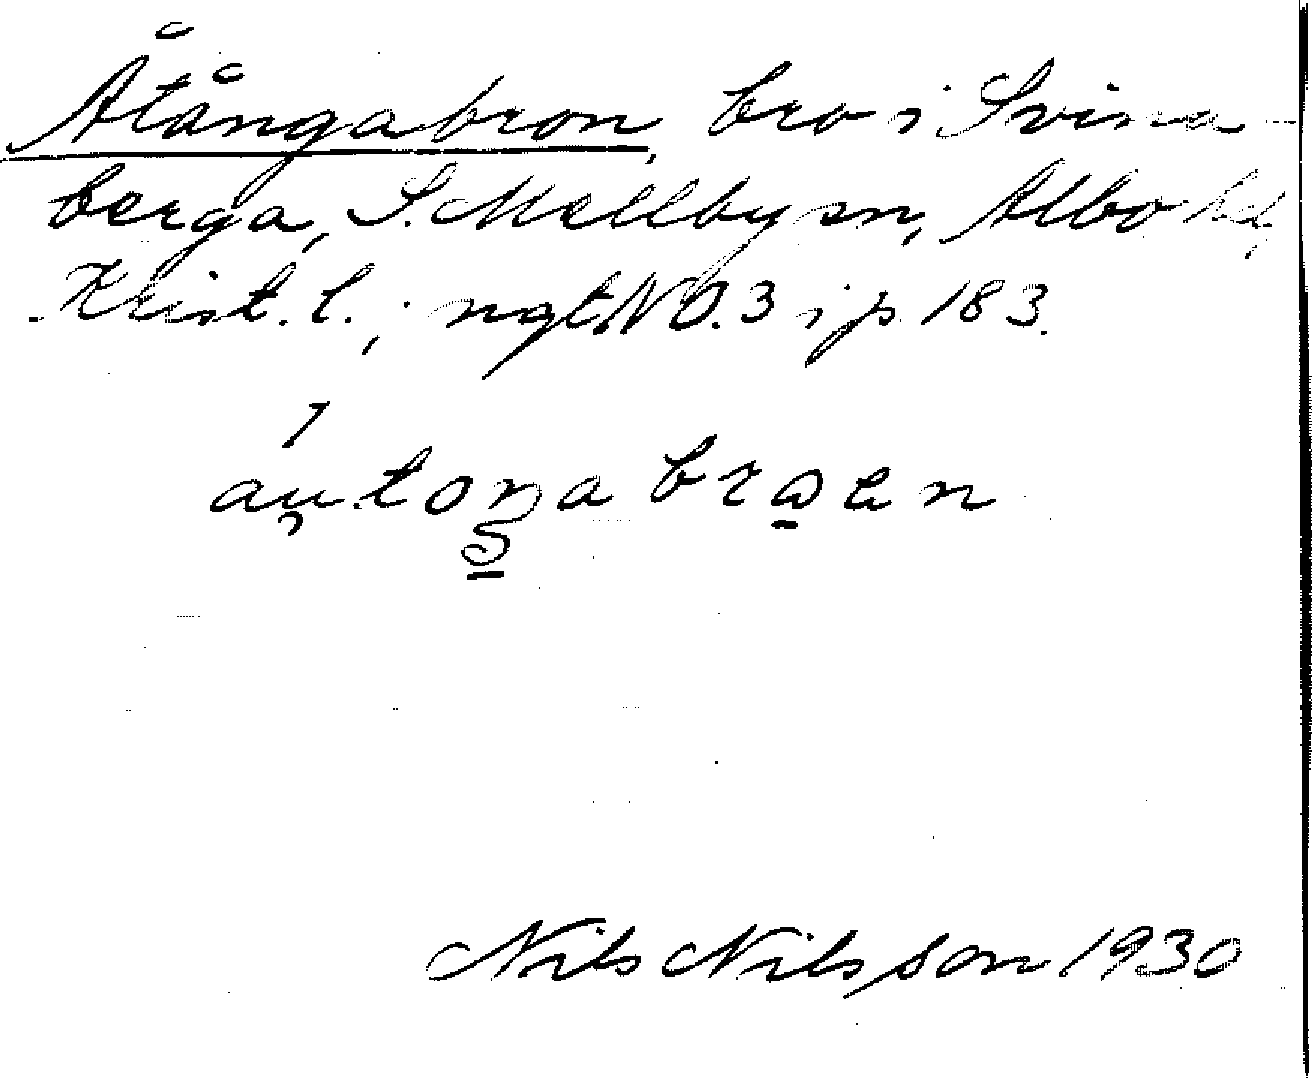 Åtångabron, bro i Svina-
berga, S. Mellby sn, Albo hd,
Krist. l.; ngt NO. 3 i p. 183.
au̯toŋa braen
Nils Nilsson 1930